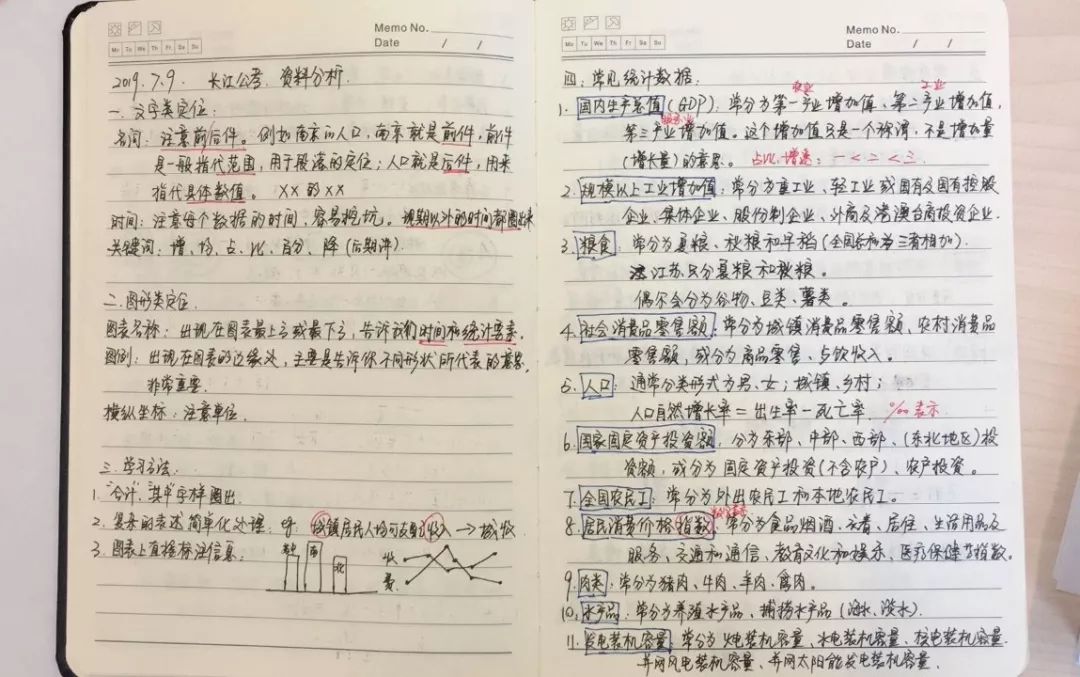 Memo No.
Mo Tu We Th Fr Sa Su
Date / /
2019.7.9. 长江公考. 资料分析.
一. 文字类定位:
名词: 注意前后件。例如南京的人口, 南京就是前件, 前件
是一般指代范围, 用于段落的定位; 人口就是后件, 用来
指代具体数值。 XX 的 XX
时间: 注意每个数据的时间, 容易挖坑。现期以外的时间都圈出来
关键词: 增、均、占、比、百分、降 (后期讲).
二. 图形类定位.
图表名称: 出现在图表最上方或最下方, 告诉我们时间和统计要素.
图例: 出现在图表的边缘处, 主要是告诉你不同形状所代表的意思,
非常重要.
横纵坐标: 注意单位.
三. 学习方法.
1. "合计"、"其中"字样圈出.
2. 复杂的表述简单化处理: eg: 城镇居民人均可支配收入 → 城收
3. 图表上直接标注信息:
南
北
收
费
Memo No.
Mo Tu We Th Fr Sa Su
Date / /
四: 常见统计数据:
农业 工业
1. 国内生产总值 (GDP): 常分为第一产业增加值、第二产业增加值,
服务业
第三产业增加值。这个增加值只是一个称谓, 不是增加量
(增长量) 的意思。 占比、增速: 一 < 二 < 三.
2. 规模以上工业增加值: 常分为重工业、轻工业或国有及国有控股
企业、集体企业、股份制企业、外商及港澳台商投资企业.
3. 粮食: 常分为夏粮、秋粮和早稻 (全国总和为三者相加).
江苏只分夏粮和秋粮。
偶尔会分为谷物、豆类、薯类。
4. 社会消费品零售额: 常分为城镇消费品零售额、农村消费品
零售额, 或分为商品零售、与饮收入。
5. 人口: 通常分类形式为男、女; 城镇、乡村;
人口自然增长率 = 出生率 - 死亡率. ‰ 表示
6. 国家固定资产投资额: 分为东部、中部、西部、(东北地区) 投
资额, 或分为固定资产投资 (不含农户)、农户投资。
7. 全国农民工: 常分为外出农民工和本地农民工。
8. 居民消费价格指数: 常分为食品烟酒、衣着、居住、生活用品及
服务、交通和通信、教育文化和娱乐、医疗保健等指数。
9. 肉类: 常分为猪肉、牛肉、羊肉、禽肉。
10. 水产品: 常分为养殖水产品、捕捞水产品 (海水、淡水).
11. 发电装机容量: 常分为火电装机容量、水电装机容量、核电装机容量.
并网风电装机容量、并网太阳能发电装机容量.